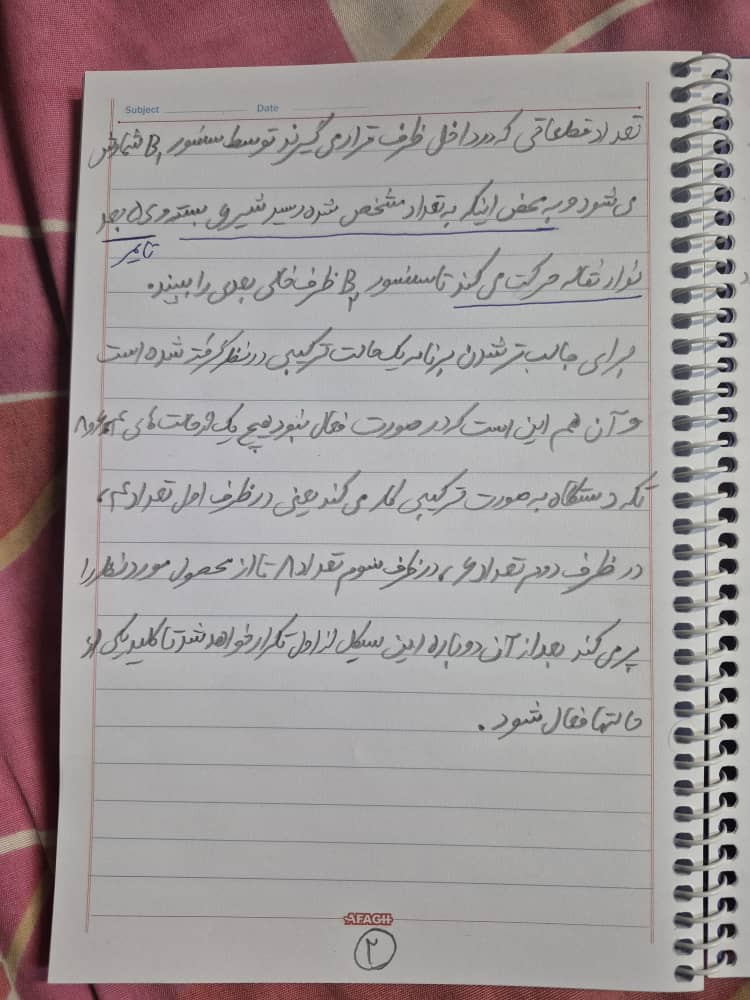 Subject Date
تعداد قطعاتی که در داخل ظرف قرار می گیرند توسط سنسور B۱ شمارش
می شود و به محض اینکه به تعداد مشخص شده رسید شیر بسته و ۵ی بعد
تایمر
نوار نقاله حرکت می کند تا سنسور B۲ ظرف خالی بعدی را ببیند.
برای جالب تر شدن برنامه یک حالت ترکیبی در نظر گرفته شده است
و آن هم این است که در صورت فعال نبود هیچ یک از حالت های ۴، ۶ و ۸
تکه دستگاه به صورت ترکیبی کار می کند یعنی در ظرف اول تعداد ۴،
در ظرف دوم تعداد ۶، در ظرف سوم تعداد ۸ تا از محصول مورد نظر را
پر می کند بعد از آن دوباره این سیکل از اول تکرار خواهد شد تا کلید یکی از
حالتها فعال شود.
AFAGH
۲